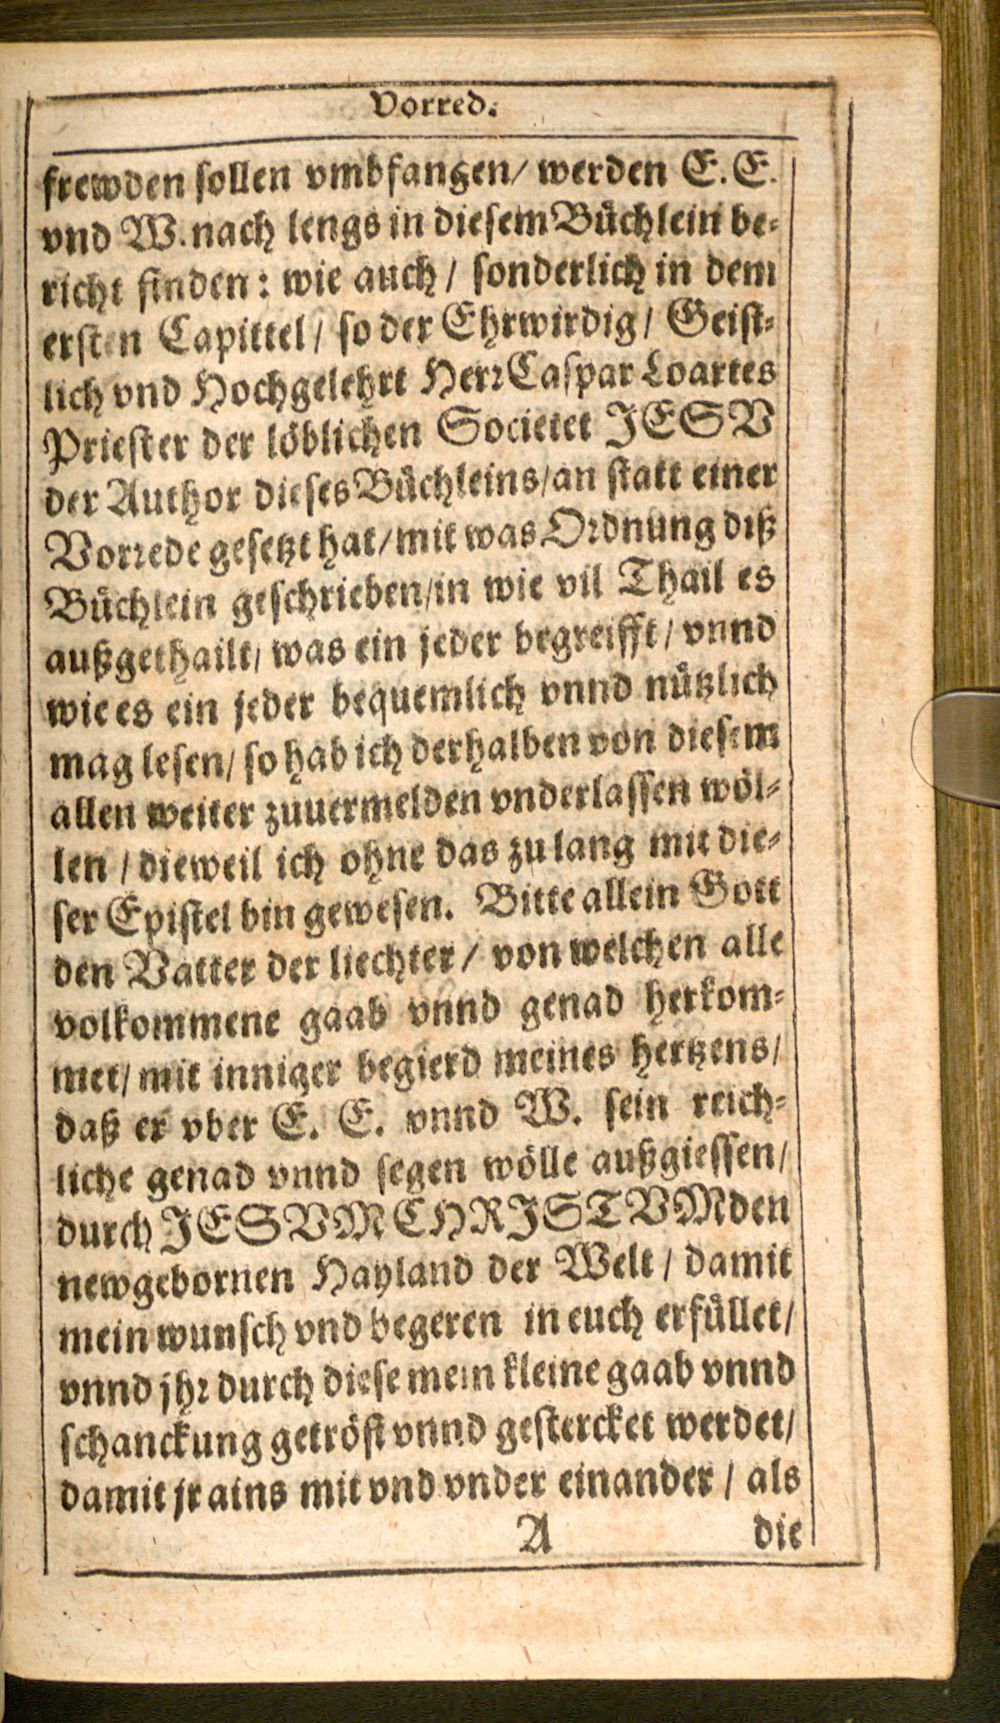 Vorred.
frewden sollen vmbfangen/ werden E. E.
vnd W. nach lengs in diesem Büchlein be-
richt finden: wie auch / sonderlich in dem
ersten Capittel / so der Ehrwirdig / Geist-
lich vnd Hochgelehrt Herr Caspar Loartes
Priester der löblichen Societet JESV
der Author dieses Büchleins/an statt einer
Vorrede gesetzt hat/mit was Ordnung diß
Büchlein geschrieben/in wie vil Thail es
außgethailt/ was ein jeder begreifft / vnnd
wie es ein jeder bequemlich vnnd nützlich
mag lesen/ so hab ich derhalben von diesem
allen weiter zuuermelden vnderlassen wöl-
len / dieweil ich ohne das zu lang mit die-
ser Epistel bin gewesen. Bitte allein Gott
den Vatter der liechter / von welchen alle
volkommene gaab vnnd genad herkom-
met/ mit inniger begierd meines hertzens/
daß er vber E. E. vnnd W. sein reich-
liche genad vnnd segen wölle außgiessen/
durch JESVM CHRJSTVM den
newgebornen Hayland der Welt / damit
mein wunsch vnd begeren in euch erfüllet/
vnnd jhr durch diese mein kleine gaab vnnd
schanckung getröst vnnd gestercket werdet/
damit jr ains mit vnd vnder einander / als
A die